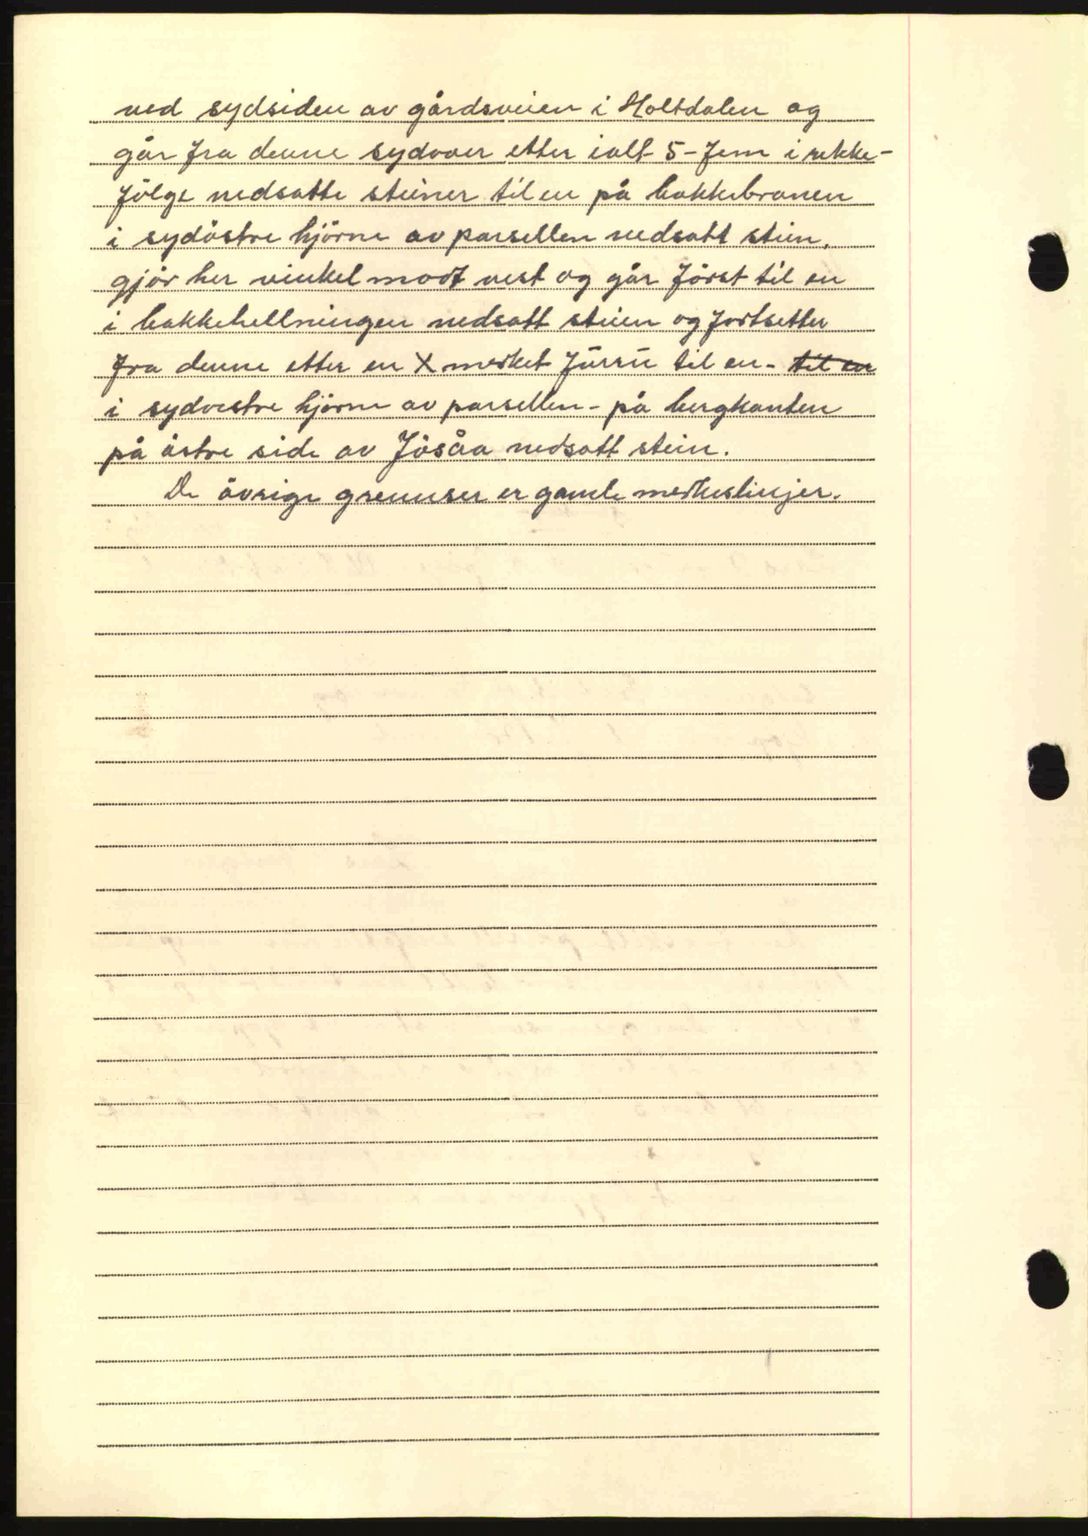 ved sydsiden av gårdsveien i Holtdalen og
går fra denne sydover etter ialt 5-fem i rekke-
følge nedsatte steiner til en på bakkebranen
i sydöstre hjörne av parsellen nedsatt stein,
gjör her vinkel mot vest og går först til en
i bakkehellningen nedsatt stein og fortsetter
fra denne etter en X merket furru til en - til en
i sydvestre hjörne av parsellen - på bergkanten
på östre side av Jösåa nedsatt stein.
De övrige grennser er gamle merkeslinjer.